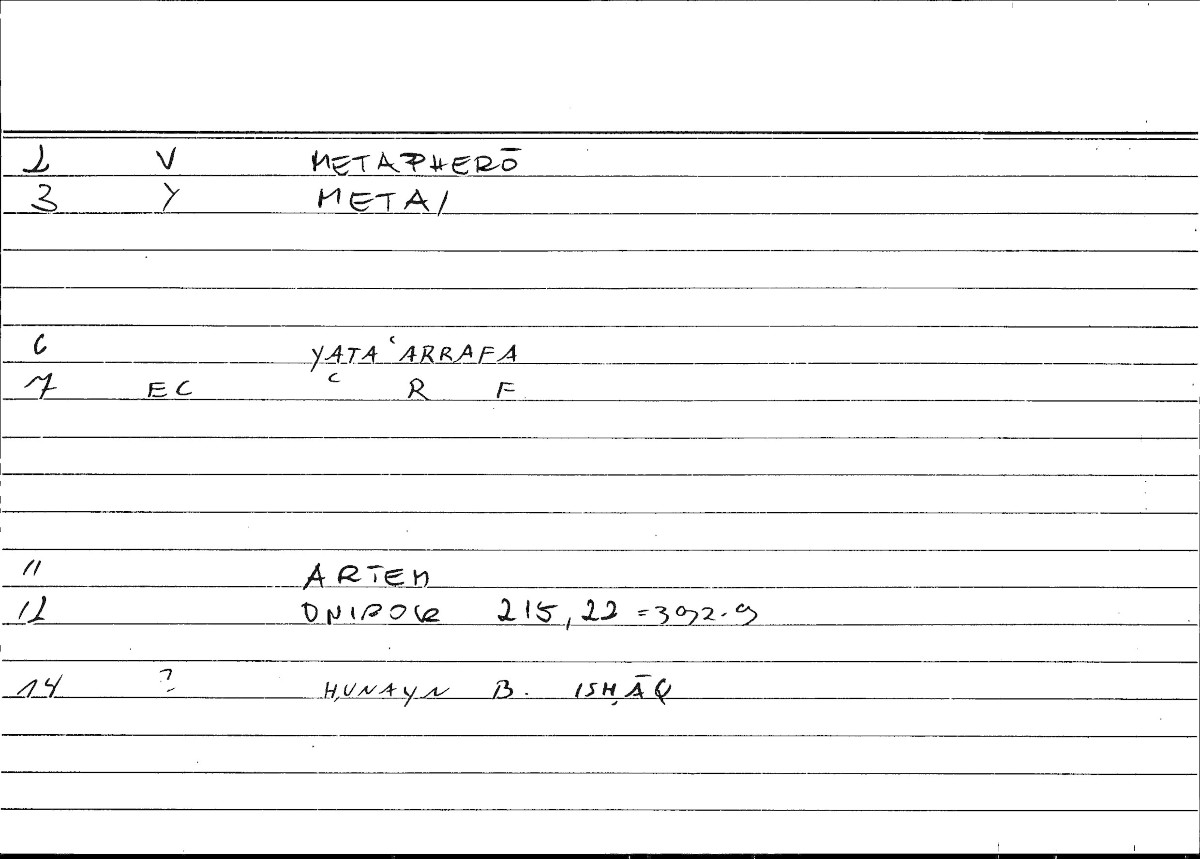 2 V METAPHERŌ
3 Y META/
6 YATAʿARRAFA
7 EC ʿ R F
11 ARTEM
12 ONIROCR 215,22 =392.9
14 ? ḤUNAYN B. ISḤĀQ